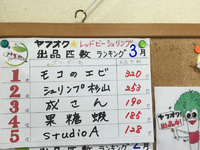 ヤフオク★レッドビーシュリンプ
出品匹数 ランキング 3月
1 モコのエビ 320
2 シュリンプ杉山 253
3 成さん 190
4 果糖蝦 185
5 studioA 128